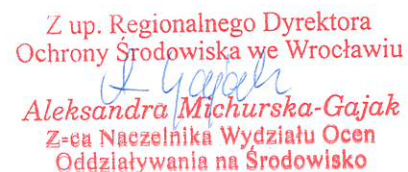 Z up. Regionalnego Dyrektora
Ochrony Środowiska we Wrocławiu
Aleksandra Michurska-Gajak
Z-ca Naczelnika Wydziału Ocen
Oddziaływania na Środowisko